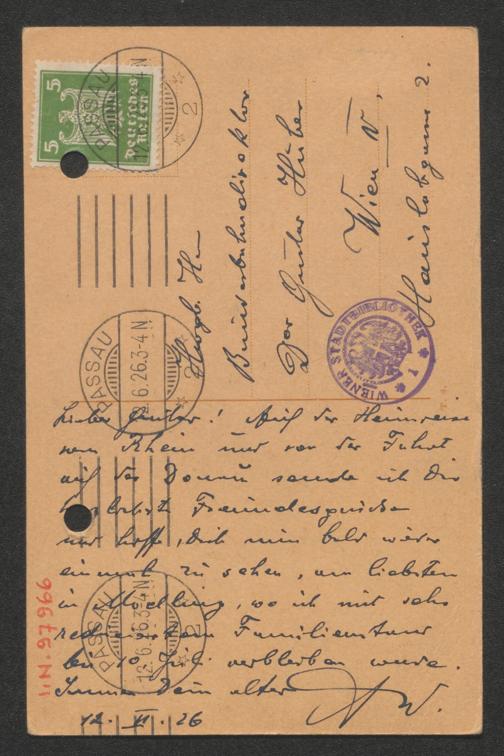 5 Deutsches Reich 5
PASSAU 2
Bundesbahndirektor
Gustav Huber
Wien V.
Hauslabgasse 2.
WIENER STADTBIBLIOTHEK * 1 *
PASSAU 6.26.3-4N 2
Lieber Gustav! Auf der Heimreise
vom Rhein und vor der Fahrt
auf der Donau sende ich Dir
herzlichste Freundesgrüße
und hoffe, Dich nun bald wieder
einmal zu sehen, am liebsten
in Mödling, wo ich mit sehr
Familienstand
bis 10. Juli verbleiben werde.
Immer Dein alter
W.
12. VI. 26
PASSAU 12.6.26.3-4N 2
I.N. 97966